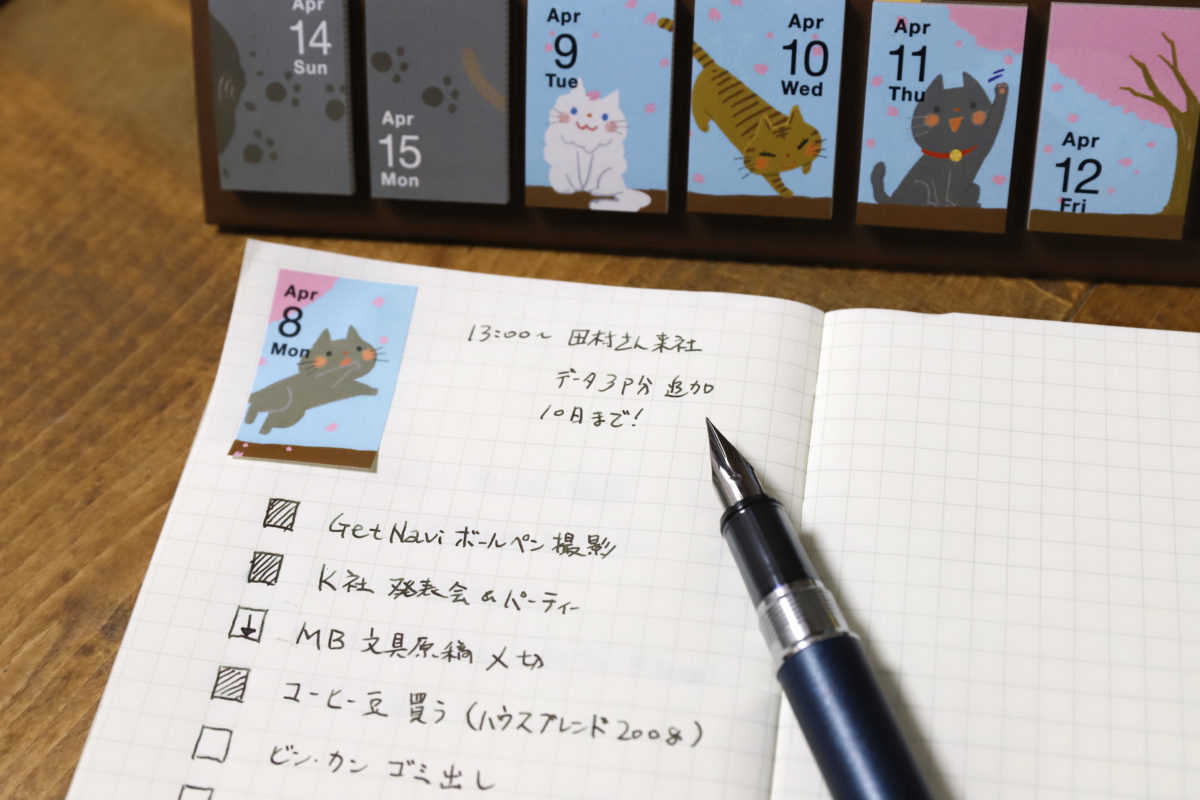 Apr
14
Sun
Apr
15
Mon
Apr
9
Tue
Apr
10
Wed
Apr
11
Thu
Apr
12
Fri
Apr
8
Mon
13:00〜 田村さん来社
データ3P分 追加
10日まで!
GetNavi ボールペン 撮影
K社 発表会 & パーティー
MB 文具原稿 〆切
コーヒー豆 買う (ハウスブレンド200g)
ビン・カン ゴミ出し